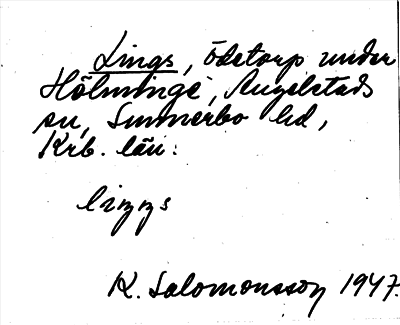 Lings, ödetorp under
Hölminge, Angelstads
sn, Sunnerbo hd,
Krb. län:
liŋŋs
K. Salomonsson 1947.